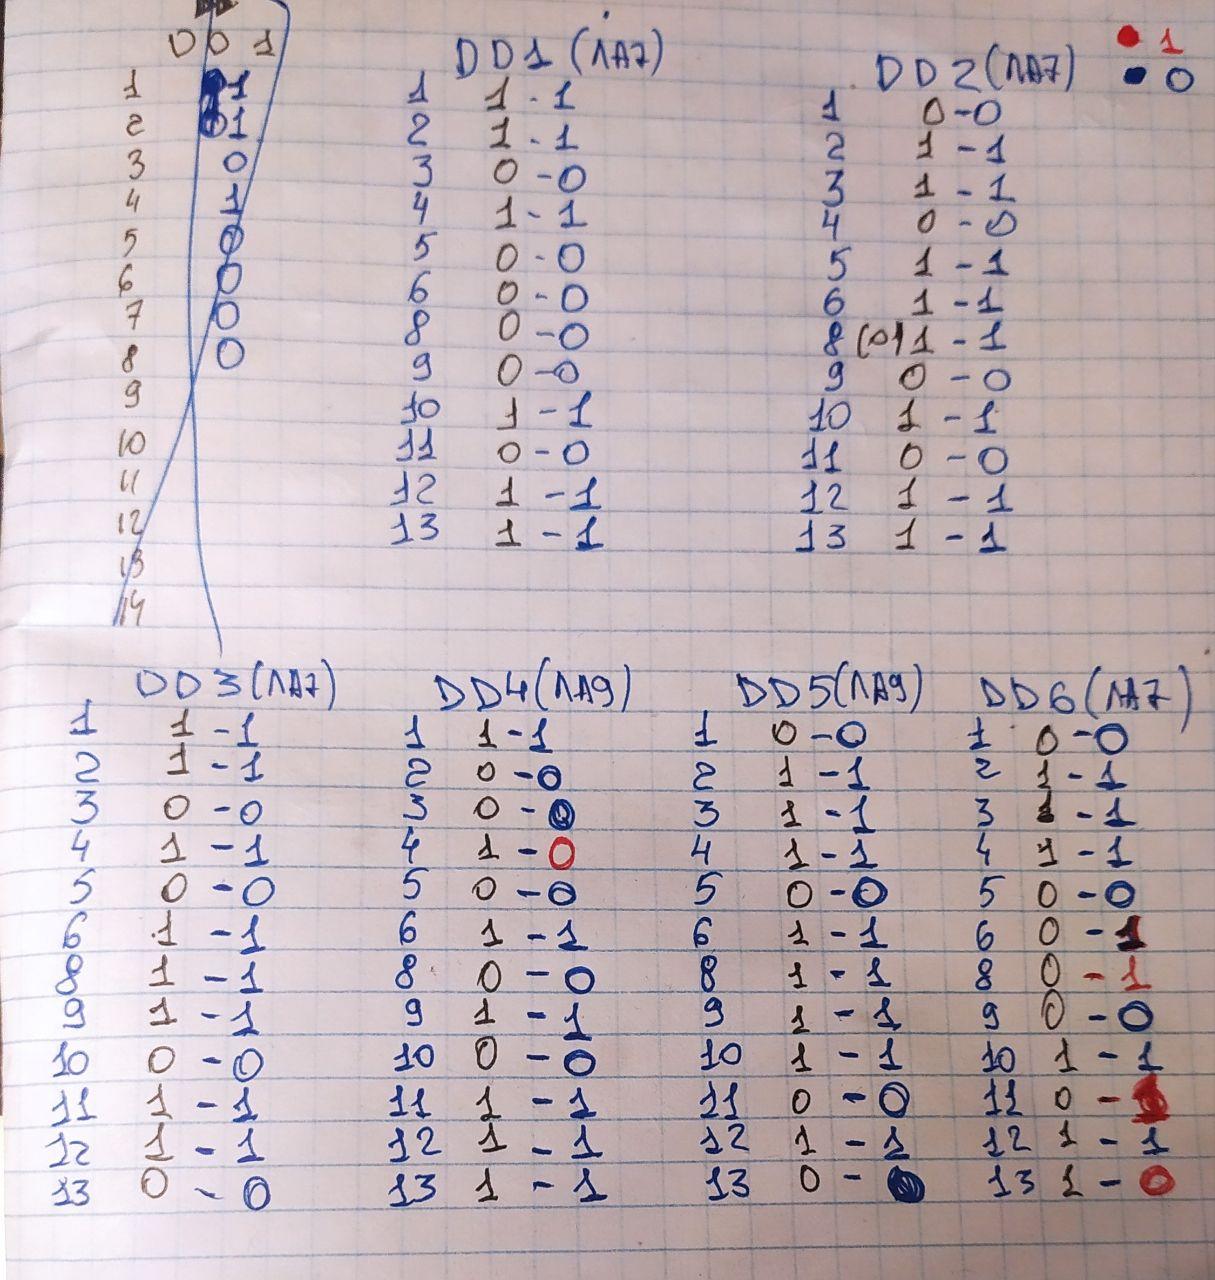 DD1
1 1
2 1
3 0
4 1
5 0
6 0
7 0
8 0
9
10
11
12
13
14
DD1 (ЛА7)
1 1 - 1
2 1 - 1
3 0 - 0
4 1 - 1
5 0 - 0
6 0 - 0
8 0 - 0
9 0 - 0
10 1 - 1
11 0 - 0
12 1 - 1
13 1 - 1
DD2 (ЛА7)
1 0 - 0
2 1 - 1
3 1 - 1
4 0 - 0
5 1 - 1
6 1 - 1
8 (0) 1 - 1
9 0 - 0
10 1 - 1
11 0 - 0
12 1 - 1
13 1 - 1
1
0
DD3 (ЛА7)
1 1 - 1
2 1 - 1
3 0 - 0
4 1 - 1
5 0 - 0
6 1 - 1
8 1 - 1
9 1 - 1
10 0 - 0
11 1 - 1
12 1 - 1
13 0 - 0
DD4 (ЛА9)
1 1 - 1
2 0 - 0
3 0 - 0
4 1 - 0
5 0 - 0
6 1 - 1
8 0 - 0
9 1 - 1
10 0 - 0
11 1 - 1
12 1 - 1
13 1 - 1
DD5 (ЛА9)
1 0 - 0
2 1 - 1
3 1 - 1
4 1 - 1
5 0 - 0
6 1 - 1
8 1 - 1
9 1 - 1
10 1 - 1
11 0 - 0
12 1 - 1
13 0 -
DD6 (ЛА7)
1 0 - 0
2 1 - 1
3 1 - 1
4 1 - 1
5 0 - 0
6 0 - 1
8 0 - 1
9 0 - 0
10 1 - 1
11 0 -
12 1 - 1
13 1 - 0